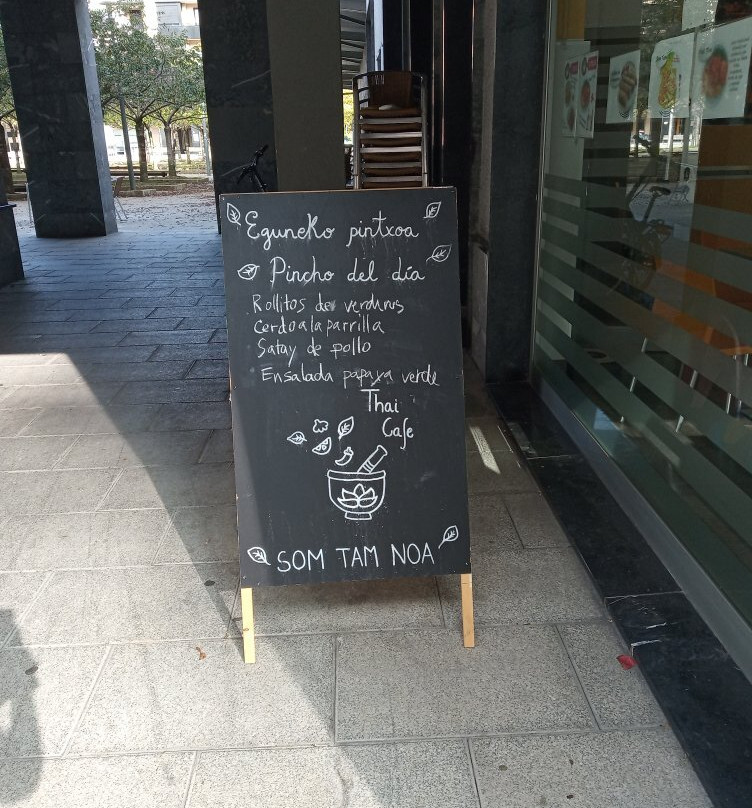 Eguneko pintxoa
Pincho del día
Rollitos de verduras
Cerdo a la parrilla
Satay de pollo
Ensalada papaya verde
Thai
Cafe
SOM TAM NOA